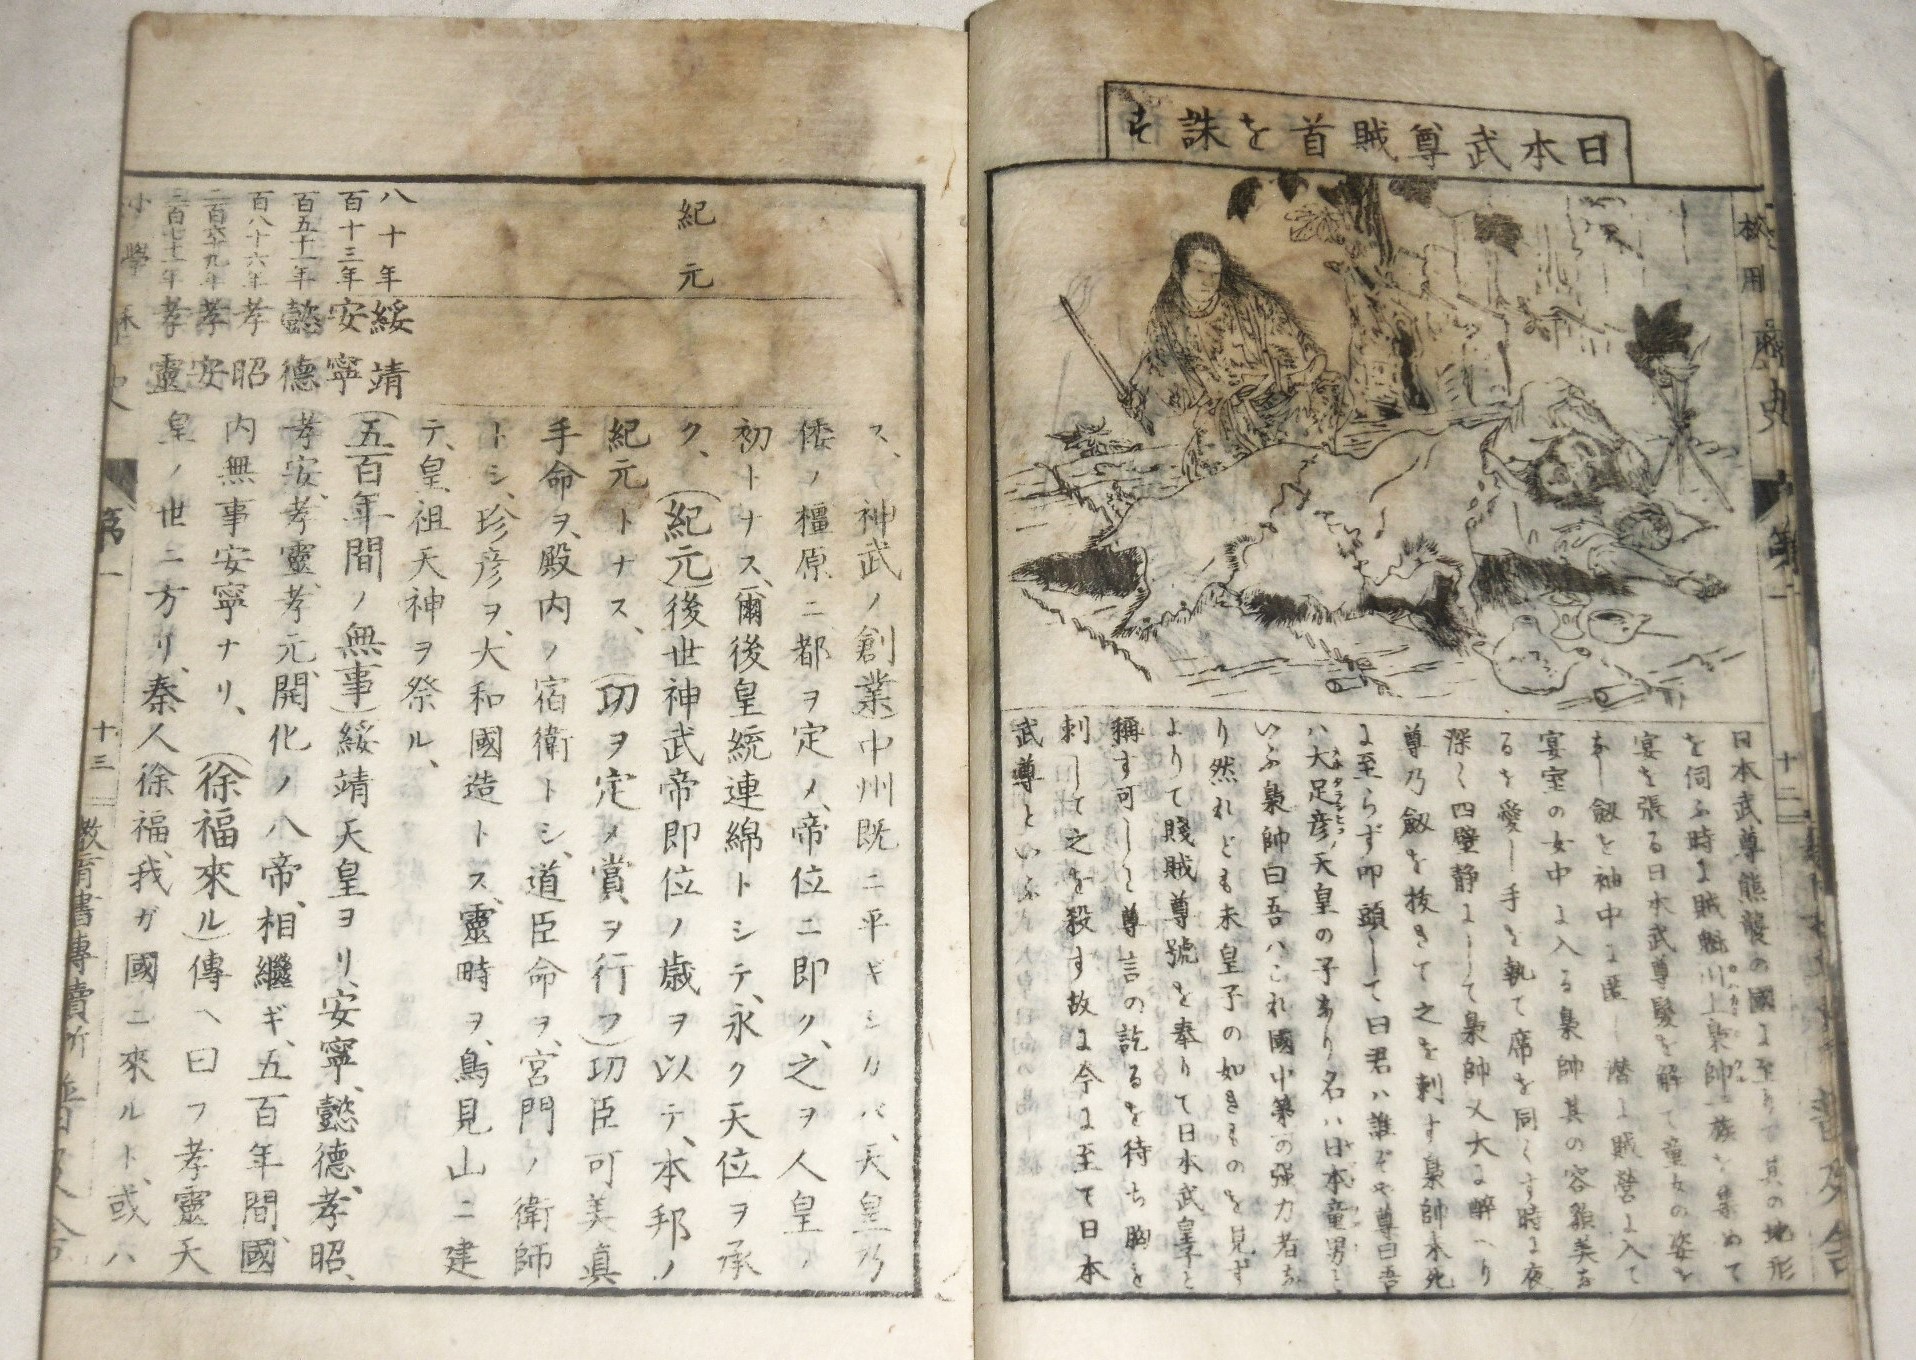 日本武尊賊首を誅す
日本武尊熊襲の國に至りて其の地形
を伺ふ時に賊魁川上梟帥一族を集めて
宴を張る日本武尊髪を解て童女の姿を
なし劔を袖中に匿し潜に賊營に入て
宴室の女中に入る梟帥其の容顔美な
るを愛し手を執て席を同くす時に夜
深く四壁静にして梟帥又大に醉へり
尊乃劔を抜きて之を刺す梟帥未死
に至らず叩頭して曰君ハ誰ぞや尊曰吾
ハ大足彦天皇の子あり名ハ日本童男と
いふ梟帥曰吾ハこれ國中第一の强力者な
り然れども未皇子の如きものを見ず
よりて賤賊尊號を奉りて日本武皇子と
稱す可しと尊言の訖るを待ち胸を
刺して之を殺す故に今に至て日本
武尊といふ
校用
史
第一
十二
紀元
ス、神武ノ創業)中州既ニ平ギシカバ、天皇乃
倭ノ橿原ニ都ヲ定メ、帝位ニ即ク、之ヲ人皇ノ
初トナス、爾後皇統連綿トシテ、永ク天位ヲ承
ク、(紀元)後世神武帝即位ノ歳ヲ以テ、本邦ノ
紀元トナス、(功ヲ定メ賞ヲ行フ)功臣可美真
手命ヲ、殿内ノ宿衛トシ、道臣命ヲ、宮門ノ衛師
トシ、珍彦ヲ、大和國造トス、靈畤ヲ、鳥見山ニ建
テ、皇祖天神ヲ祭ル、
八十年 綏靖
百十三年 安寧
百五十一年 懿德
百八十六年 孝昭
二百六十九年 孝安
三百七十一年 孝靈
(五百年間ノ無事)綏靖天皇ヨリ、安寧、懿德、孝昭、
孝安、孝靈、孝元、開化ノ八帝、相繼ギ、五百年間、國
内無事安寧ナリ、(徐福來ル)傳ヘ曰フ孝靈天
皇ノ世ニ方リ、秦人徐福、我ガ國ニ來ルト、或ハ
小學
史
第一
十三
教育書專賣所